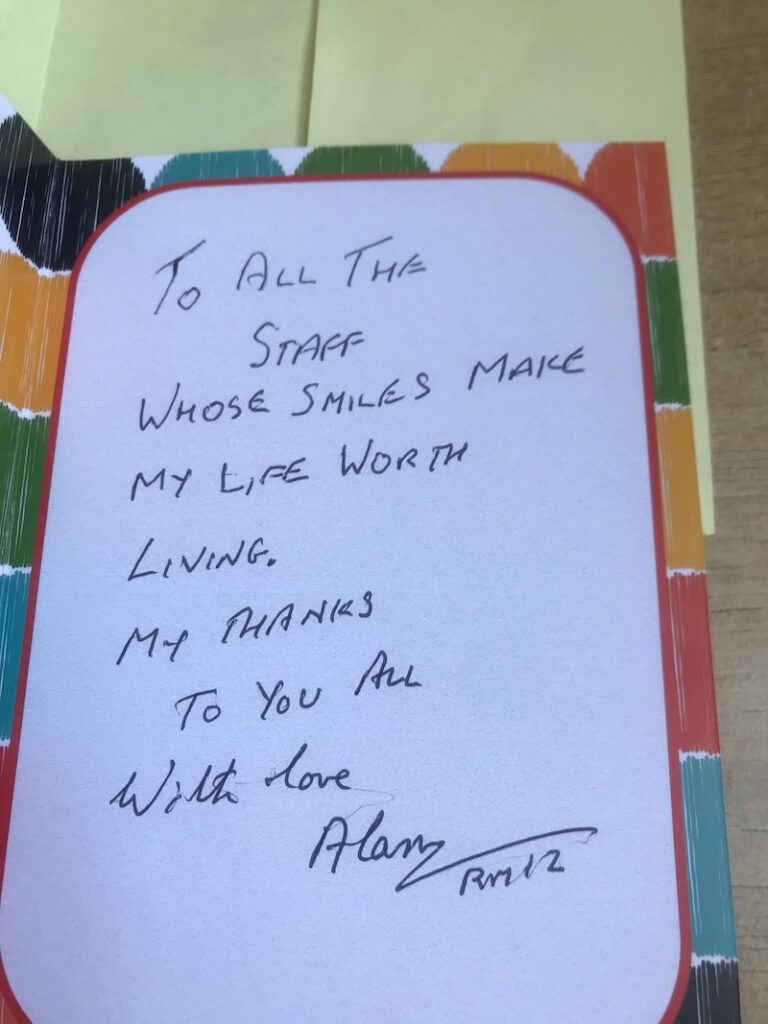 TO ALL THE
STAFF
WHOSE SMILES MAKE
MY LIFE WORTH
LIVING.
MY THANKS
TO YOU ALL
With love
Alan
RM12